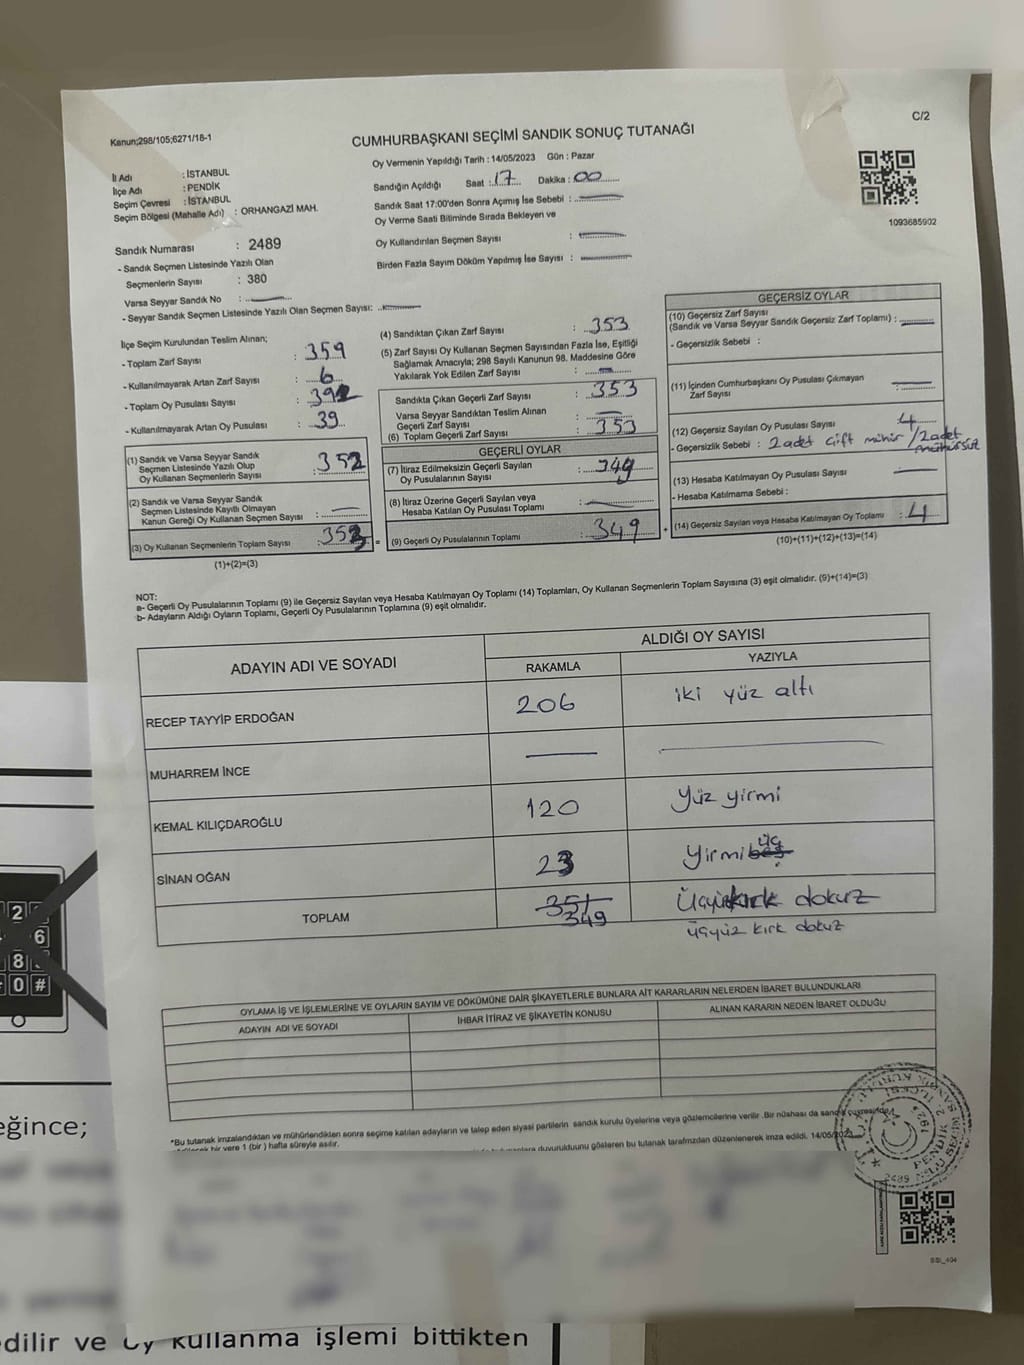 Kanun;298/105;6271/18-1
C/2
CUMHURBAŞKANI SEÇİMİ SANDIK SONUÇ TUTANAĞI
İl Adı : İSTANBUL
İlçe Adı : PENDİK
Seçim Çevresi : İSTANBUL
Seçim Bölgesi (Mahalle Adı) : ORHANGAZİ MAH.
Sandık Numarası : 2489
- Sandık Seçmen Listesinde Yazılı Olan
Seçmenlerin Sayısı : 380
Varsa Seyyar Sandık No :
- Seyyar Sandık Seçmen Listesinde Yazılı Olan Seçmen Sayısı:
Oy Vermenin Yapıldığı Tarih : 14/05/2023 Gün : Pazar
Sandığın Açıldığı Saat : 17 Dakika : 00
Sandık Saat 17:00'den Sonra Açımış İse Sebebi :
Oy Verme Saati Bitiminde Sırada Bekleyen ve
Oy Kullandırılan Seçmen Sayısı :
Birden Fazla Sayım Döküm Yapılmış İse Sayısı :
1093685902
İlçe Seçim Kurulundan Teslim Alınan;
- Toplam Zarf Sayısı : 359
- Kullanılmayarak Artan Zarf Sayısı : 6
- Toplam Oy Pusulası Sayısı : 392
- Kullanılmayarak Artan Oy Pusulası : 39
(1) Sandık ve Varsa Seyyar Sandık
Seçmen Listesinde Yazılı Olup
Oy Kullanan Seçmenlerin Sayısı : 352
(2) Sandık ve Varsa Seyyar Sandık
Seçmen Listesinde Kayıtlı Olmayan
Kanun Gereği Oy Kullanan Seçmen Sayısı :
(3) Oy Kullanan Seçmenlerin Toplam Sayısı : 353
(1)+(2)=(3)
(4) Sandıktan Çıkan Zarf Sayısı : 353
(5) Zarf Sayısı Oy Kullanan Seçmen Sayısından Fazla İse, Eşitliği
Sağlamak Amacıyla; 298 Sayılı Kanunun 98. Maddesine Göre
Yakılarak Yok Edilen Zarf Sayısı :
Sandıkta Çıkan Geçerli Zarf Sayısı : 353
Varsa Seyyar Sandıktan Teslim Alınan
Geçerli Zarf Sayısı :
(6) Toplam Geçerli Zarf Sayısı : 353
GEÇERLİ OYLAR
(7) İtiraz Edilmeksizin Geçerli Sayılan
Oy Pusulalarının Sayısı : 349
(8) İtiraz Üzerine Geçerli Sayılan veya
Hesaba Katılan Oy Pusulası Toplamı :
(9) Geçerli Oy Pusulalarının Toplamı : 349
GEÇERSİZ OYLAR
(10) Geçersiz Zarf Sayısı
(Sandık ve Varsa Seyyar Sandık Geçersiz Zarf Toplamı) :
- Geçersizlik Sebebi :
(11) İçinden Cumhurbaşkanı Oy Pusulası Çıkmayan
Zarf Sayısı :
(12) Geçersiz Sayılan Oy Pusulası Sayısı : 4
- Geçersizlik Sebebi : 2 adet çift mühür / 2 adet
mühürsüz
(13) Hesaba Katılmayan Oy Pusulası Sayısı
- Hesaba Katılmama Sebebi :
(14) Geçersiz Sayılan veya Hesaba Katılmayan Oy Toplamı : 4
(10)+(11)+(12)+(13)=(14)
NOT:
a- Geçerli Oy Pusulalarının Toplamı (9) ile Geçersiz Sayılan veya Hesaba Katılmayan Oy Toplamı (14) Toplamları, Oy Kullanan Seçmenlerin Toplam Sayısına (3) eşit olmalıdır. (9)+(14)=(3)
b- Adayların Aldığı Oyların Toplamı, Geçerli Oy Pusulalarının Toplamına (9) eşit olmalıdır.
ADAYIN ADI VE SOYADI
ALDIĞI OY SAYISI
RAKAMLA YAZIYLA
RECEP TAYYİP ERDOĞAN 206 iki yüz altı
MUHARREM İNCE
KEMAL KILIÇDAROĞLU 120 Yüz yirmi
SİNAN OĞAN 23 Yirmi beş üç
TOPLAM 351 349 Üçyüzkırk dokuz
üçyüz kırk dokuz
OYLAMA İŞ VE İŞLEMLERİNE VE OYLARIN SAYIM VE DÖKÜMÜNE DAİR ŞİKAYETLERLE BUNLARA AİT KARARLARIN NELERDEN İBARET BULUNDUKLARI
ADAYIN ADI VE SOYADI İHBAR İTİRAZ VE ŞİKAYETİN KONUSU ALINAN KARARIN NEDEN İBARET OLDUĞU
*Bu tutanak imzalandıktan ve mühürlendikten sonra seçime katılan adayların ve talep eden siyasi partilerin sandık kurulu üyelerine veya gözlemcilerine verilir .Bir nüshası da sandık çevresinde
bir yere 1 (bir ) hafta süreyle asılır.
duyurulduunu gösteren bu tutanak tarafımızdan düzenlenerek imza edildi. 14/05/2023
PENDİK 2
2489 NOLU
2
6
8
0 #
eğince;
edilir ve oy kullanma işlemi bittikten